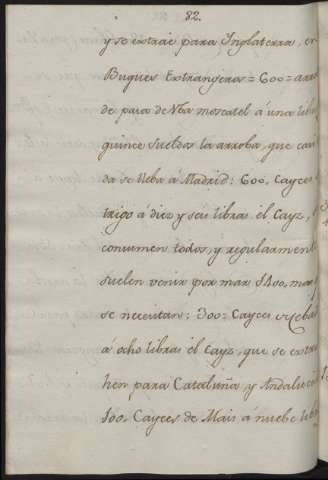 82.
y se extrae para Inglaterra, en
Buques Extrangeros = 600 = arro
de pasa de Vba moscatel á una libra
quince sueldos la arroba, que
da se lleba á Madrid: 600, Cayces
trigo á diez y seis libras el Cayz,
consumen todos, y regularment
suelen venir por mar 1400, mas
se necesitan: 300: Cayces
á ocho libras el Cayz, que se extra
hen para Cataluña y Andaluci
100, Cayces de Mais á nuebe lib